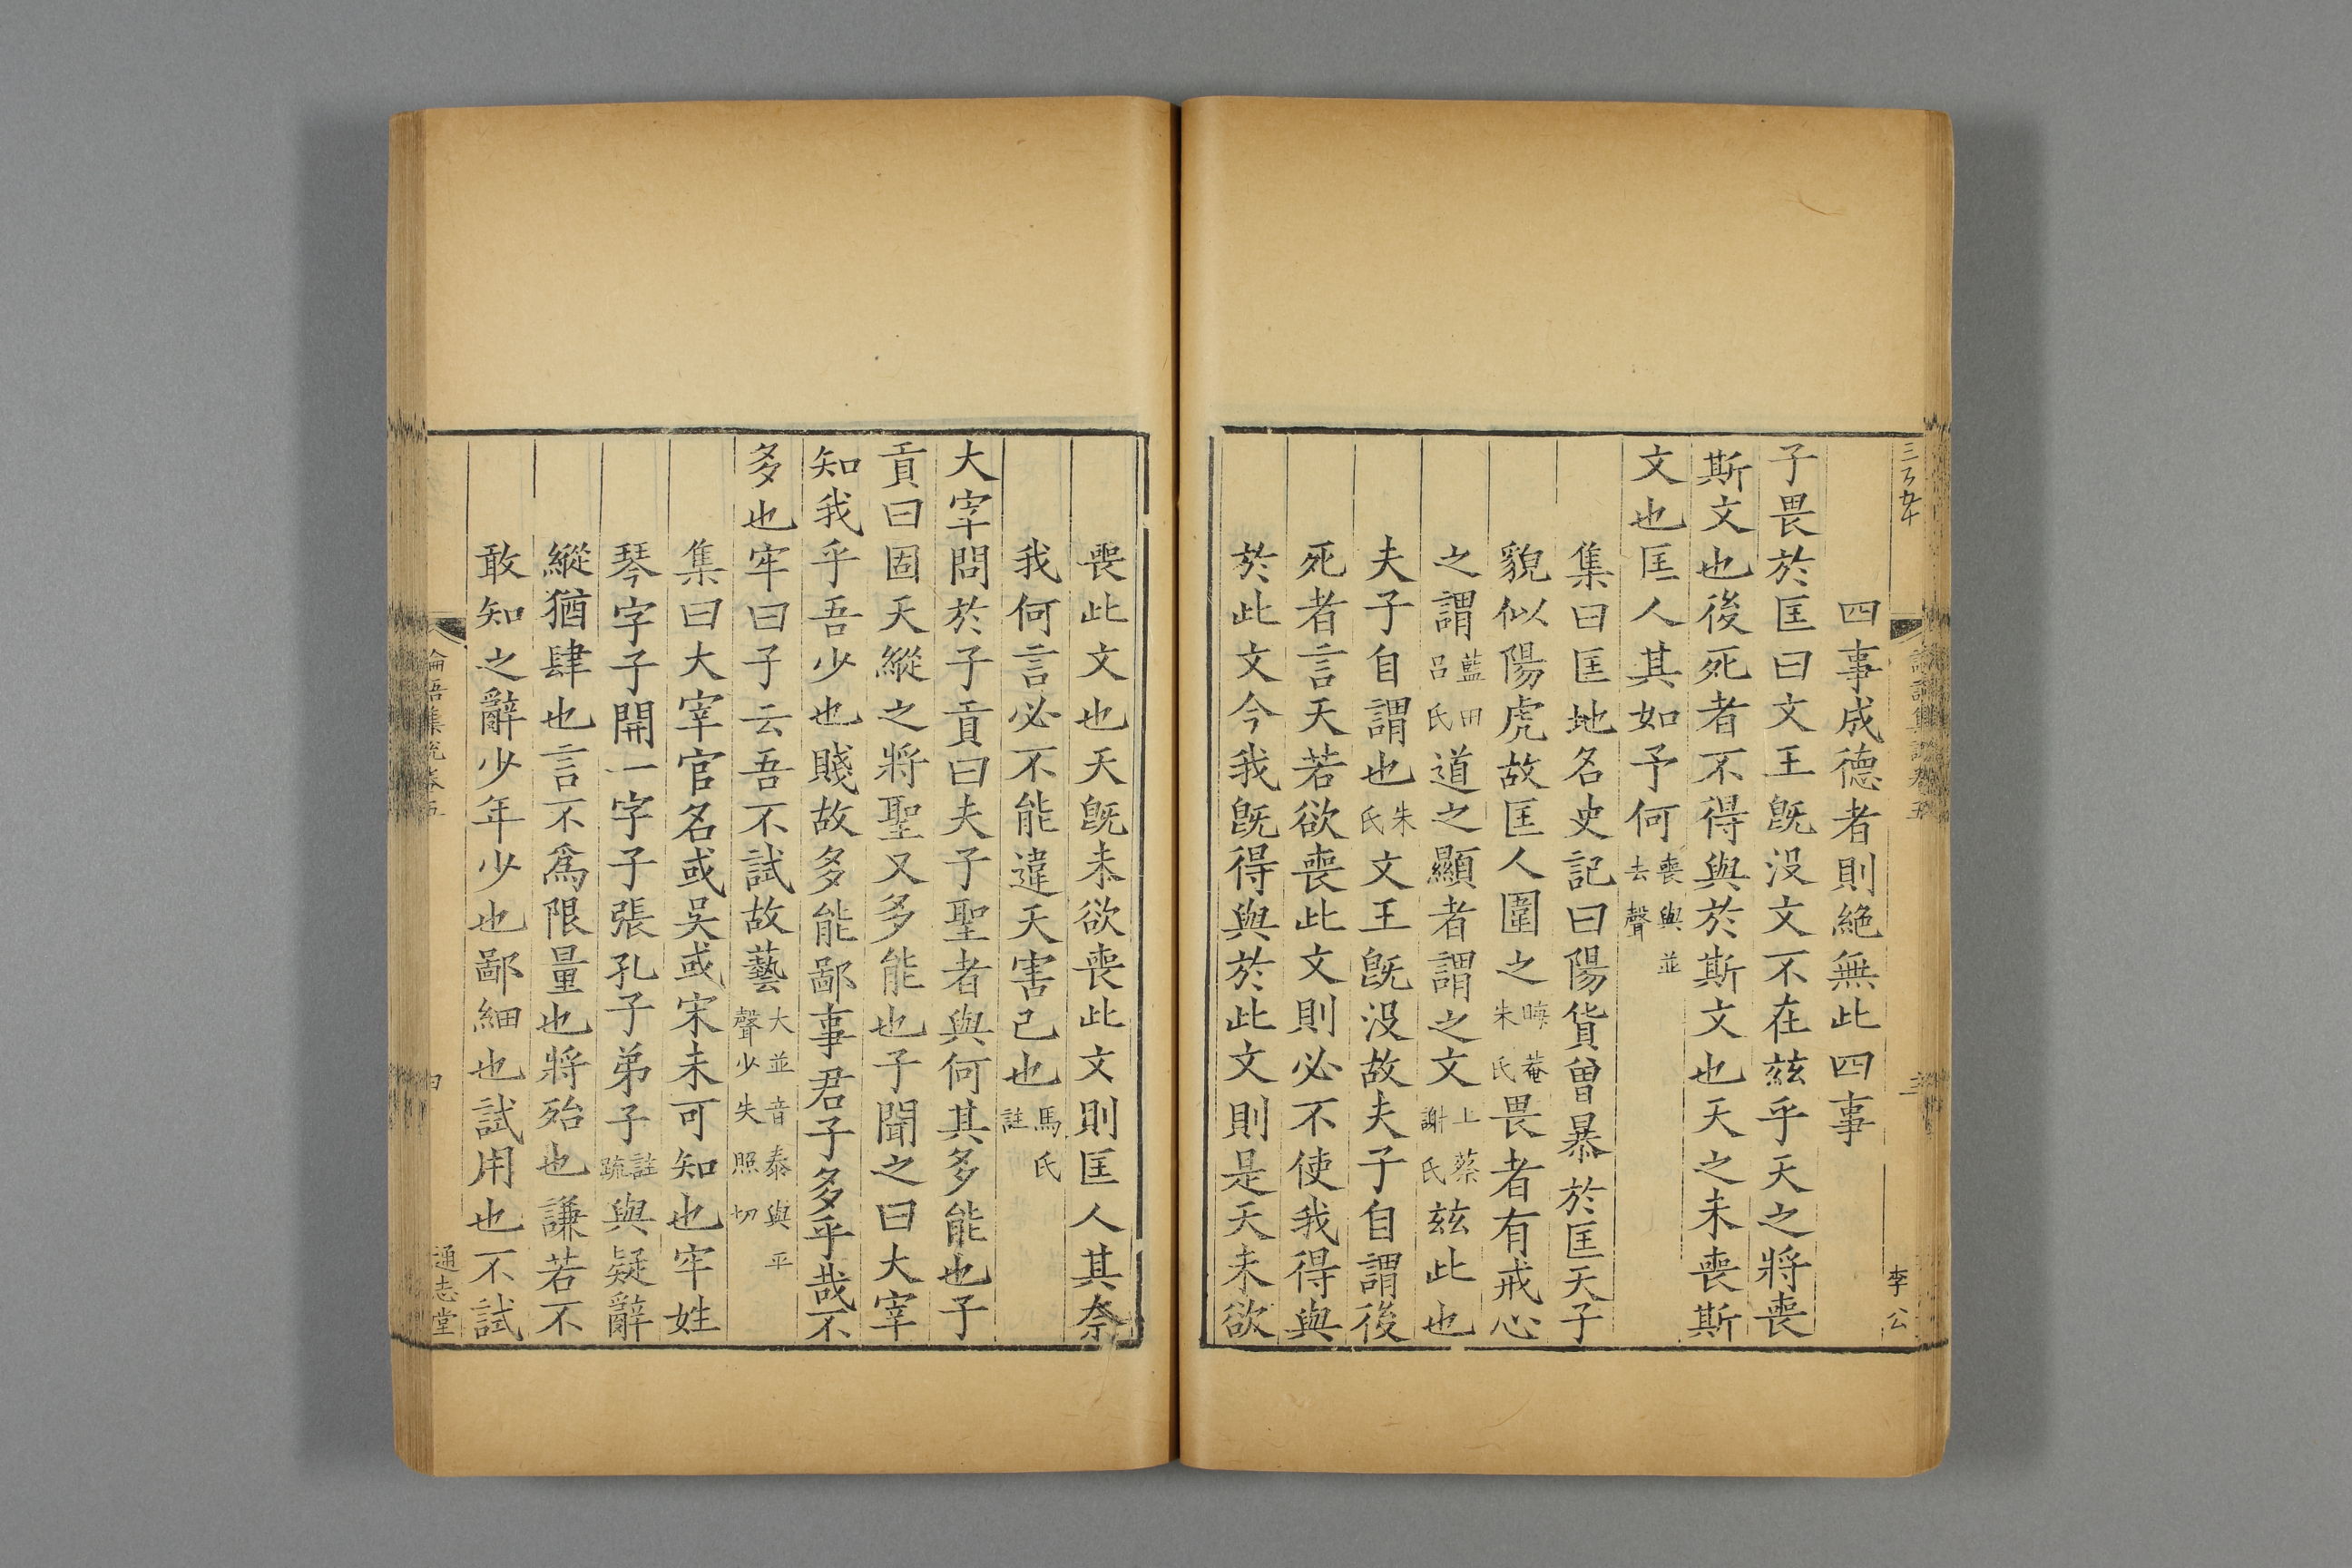 四事成德者則絶無此四事
子畏於匡曰文王旣没文不在兹乎天之將喪
斯文也後死者不得與於斯文也天之未喪斯
文也匡人其如予何喪與並去聲
集曰匡地名史記曰陽貨曾暴於匡夫子
貌似陽虎故匡人圍之晦菴朱氏畏者有戒心
之謂藍田呂氏道之顯者謂之文上蔡謝氏兹此也
夫子自謂也朱氏文王旣没故夫子自謂後
死者言天若欲喪此文則必不使我得與
於此文今我旣得與於此文則是天未欲
喪此文也天旣未欲喪此文則匡人其奈
我何言必不能違天害己也馬氏註
大宰問於子貢曰夫子聖者與何其多能也子
貢曰固天縱之將聖又多能也子聞之曰大宰
知我乎吾少也賤故多能鄙事君子多乎哉不
多也牢曰子云吾不試故藝大並音泰與平聲少失照切
集曰大宰官名或吳或宋未可知也牢姓
琴字子開一字子張孔子弟子註疏與疑辭
縱猶肆也言不爲限量也將殆也謙若不
敢知之辭少年少也鄙細也試用也不試
通志堂
李公